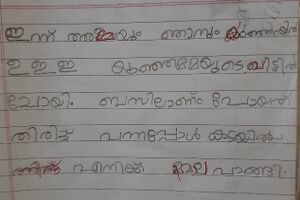 ഇന്ന് അമ്മയും ഞാനും
കുഞ്ഞമ്മയുടെ വീട്ടിൽ
പോയി. ബസിലാണ് പോയത്
തിരിച്ച് വന്നപ്പോൾ കടയിൽ
നിന്ന് എനിക്ക് വാങ്ങി.